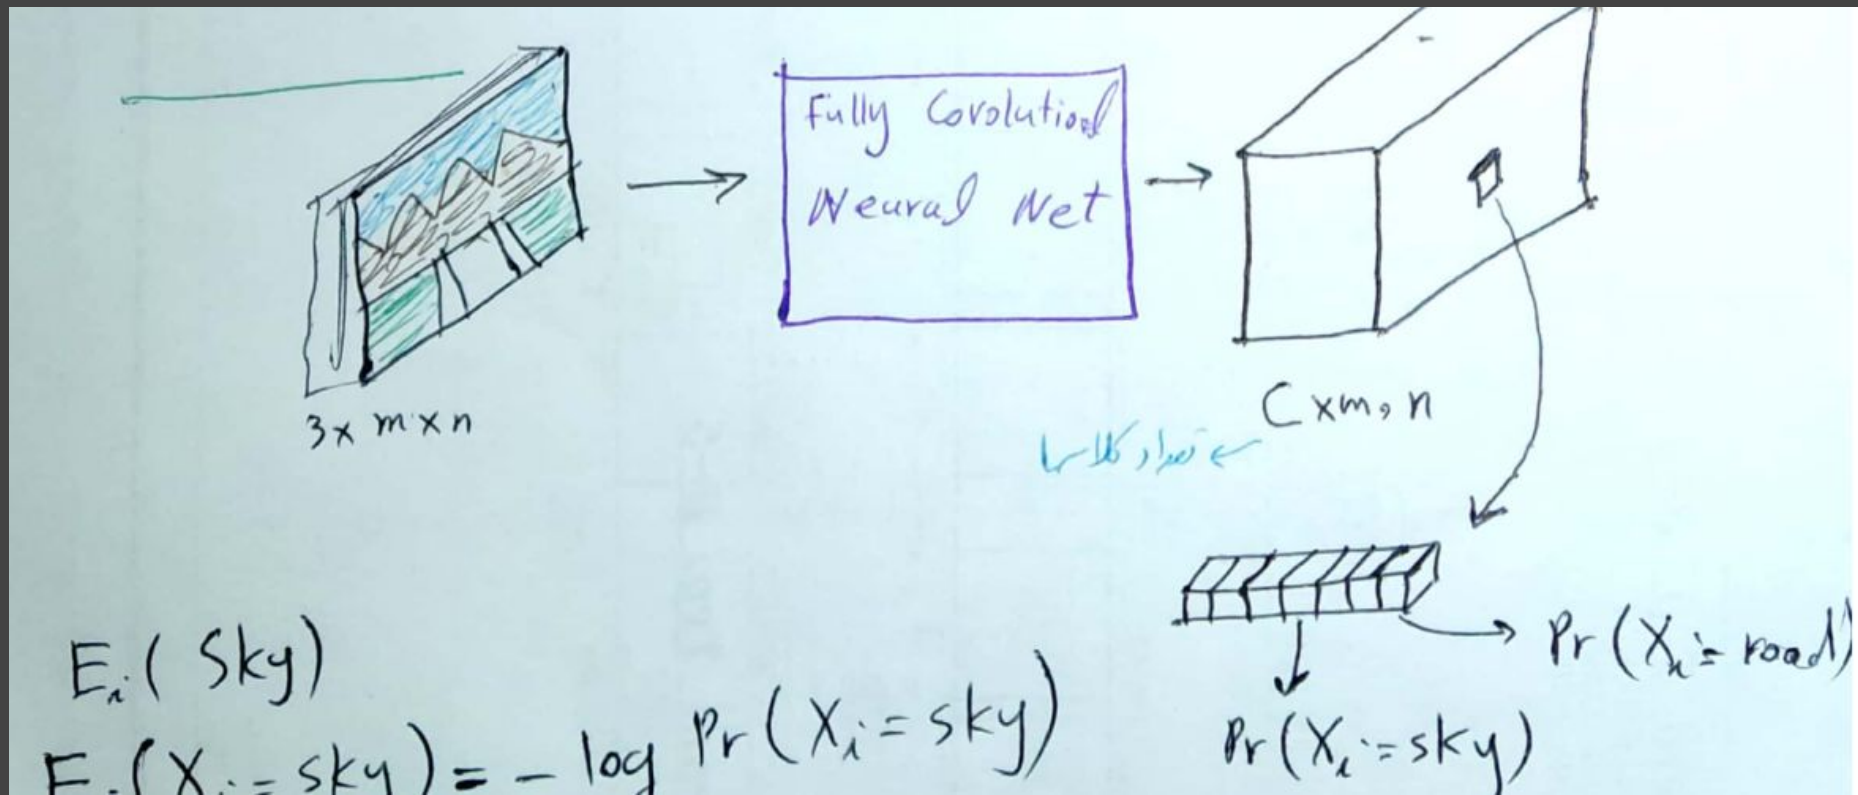 Fully Covolutional
Neural Net
3 x m x n
C x m, n
← تعداد کلاسها
Pr(Xi = road)
Ei(Sky)
Pr(Xi = sky)
Ei(Xi = sky) = - log Pr(Xi = sky)